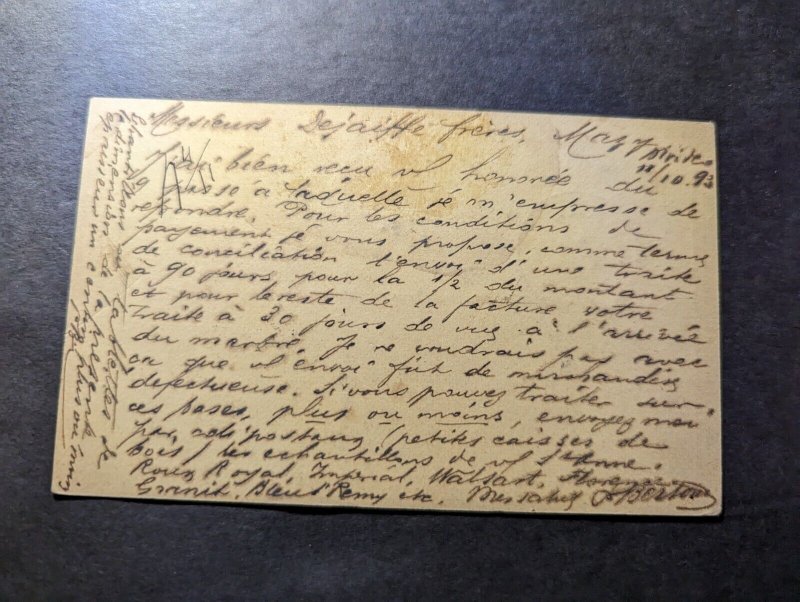 Messieurs Dejaiffe frères, Mazy
11/10.93
J'ai bien reçu vl honorée du
9 passé à laquelle je m'empresse de
répondre. Pour les conditions de
payement je vous propose, comme terme
de conciliation l'envoi d'une traite
à 90 jours pour la 1/2 du montant
et pour le reste de la facture votre
traite à 30 jours de vue à l'arrivée
du marbre. Je ne voudrais pas avec
ou que vl envoi fut de marchandise
defectueuse. Si vous pouvez traiter sur
ces bases, plus ou moins, envoyez moi
par colis postaux (petites caisses de
bois) les échantillons de vl
Rouge Royal, Impérial, Walsart, Florence
Granit, Bleu Remy etc. Mes salut
Echantillons de la
dimension de la présente
épaisseur un centimètre plus ou moins